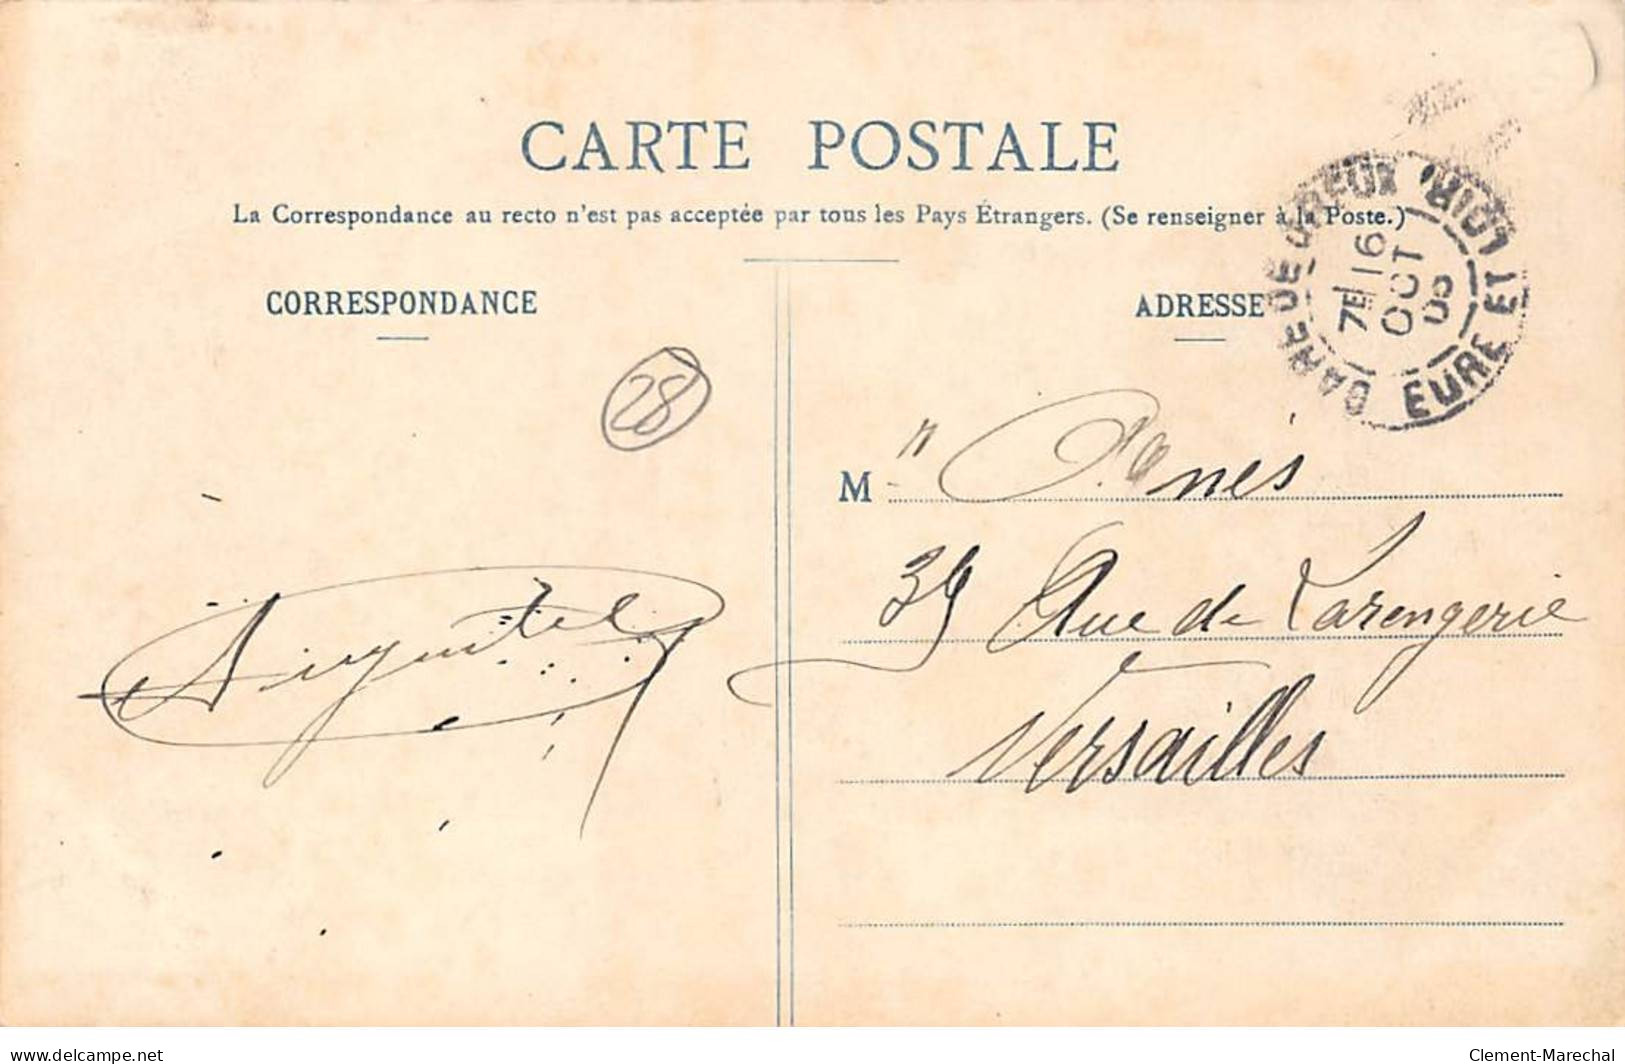 CARTE POSTALE
La Correspondance au recto n'est pas acceptée par tous les Pays Étrangers. (Se renseigner à la Poste.)
CORRESPONDANCE
ADRESSE
GARE DE DREUX EURE ET LOIR
7E 16
OCT
05
28
M
39 Rue de Larengerie
Versailles
delcampe.net
Clement-Marechal